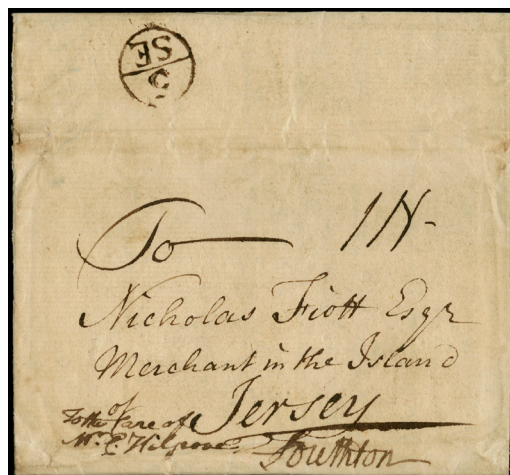 SE
To 1N-
Nicholas Fiott Esqr
Merchant in the Island
of Jersey
To the Care of
Mr. P. Hilgrove
Southton